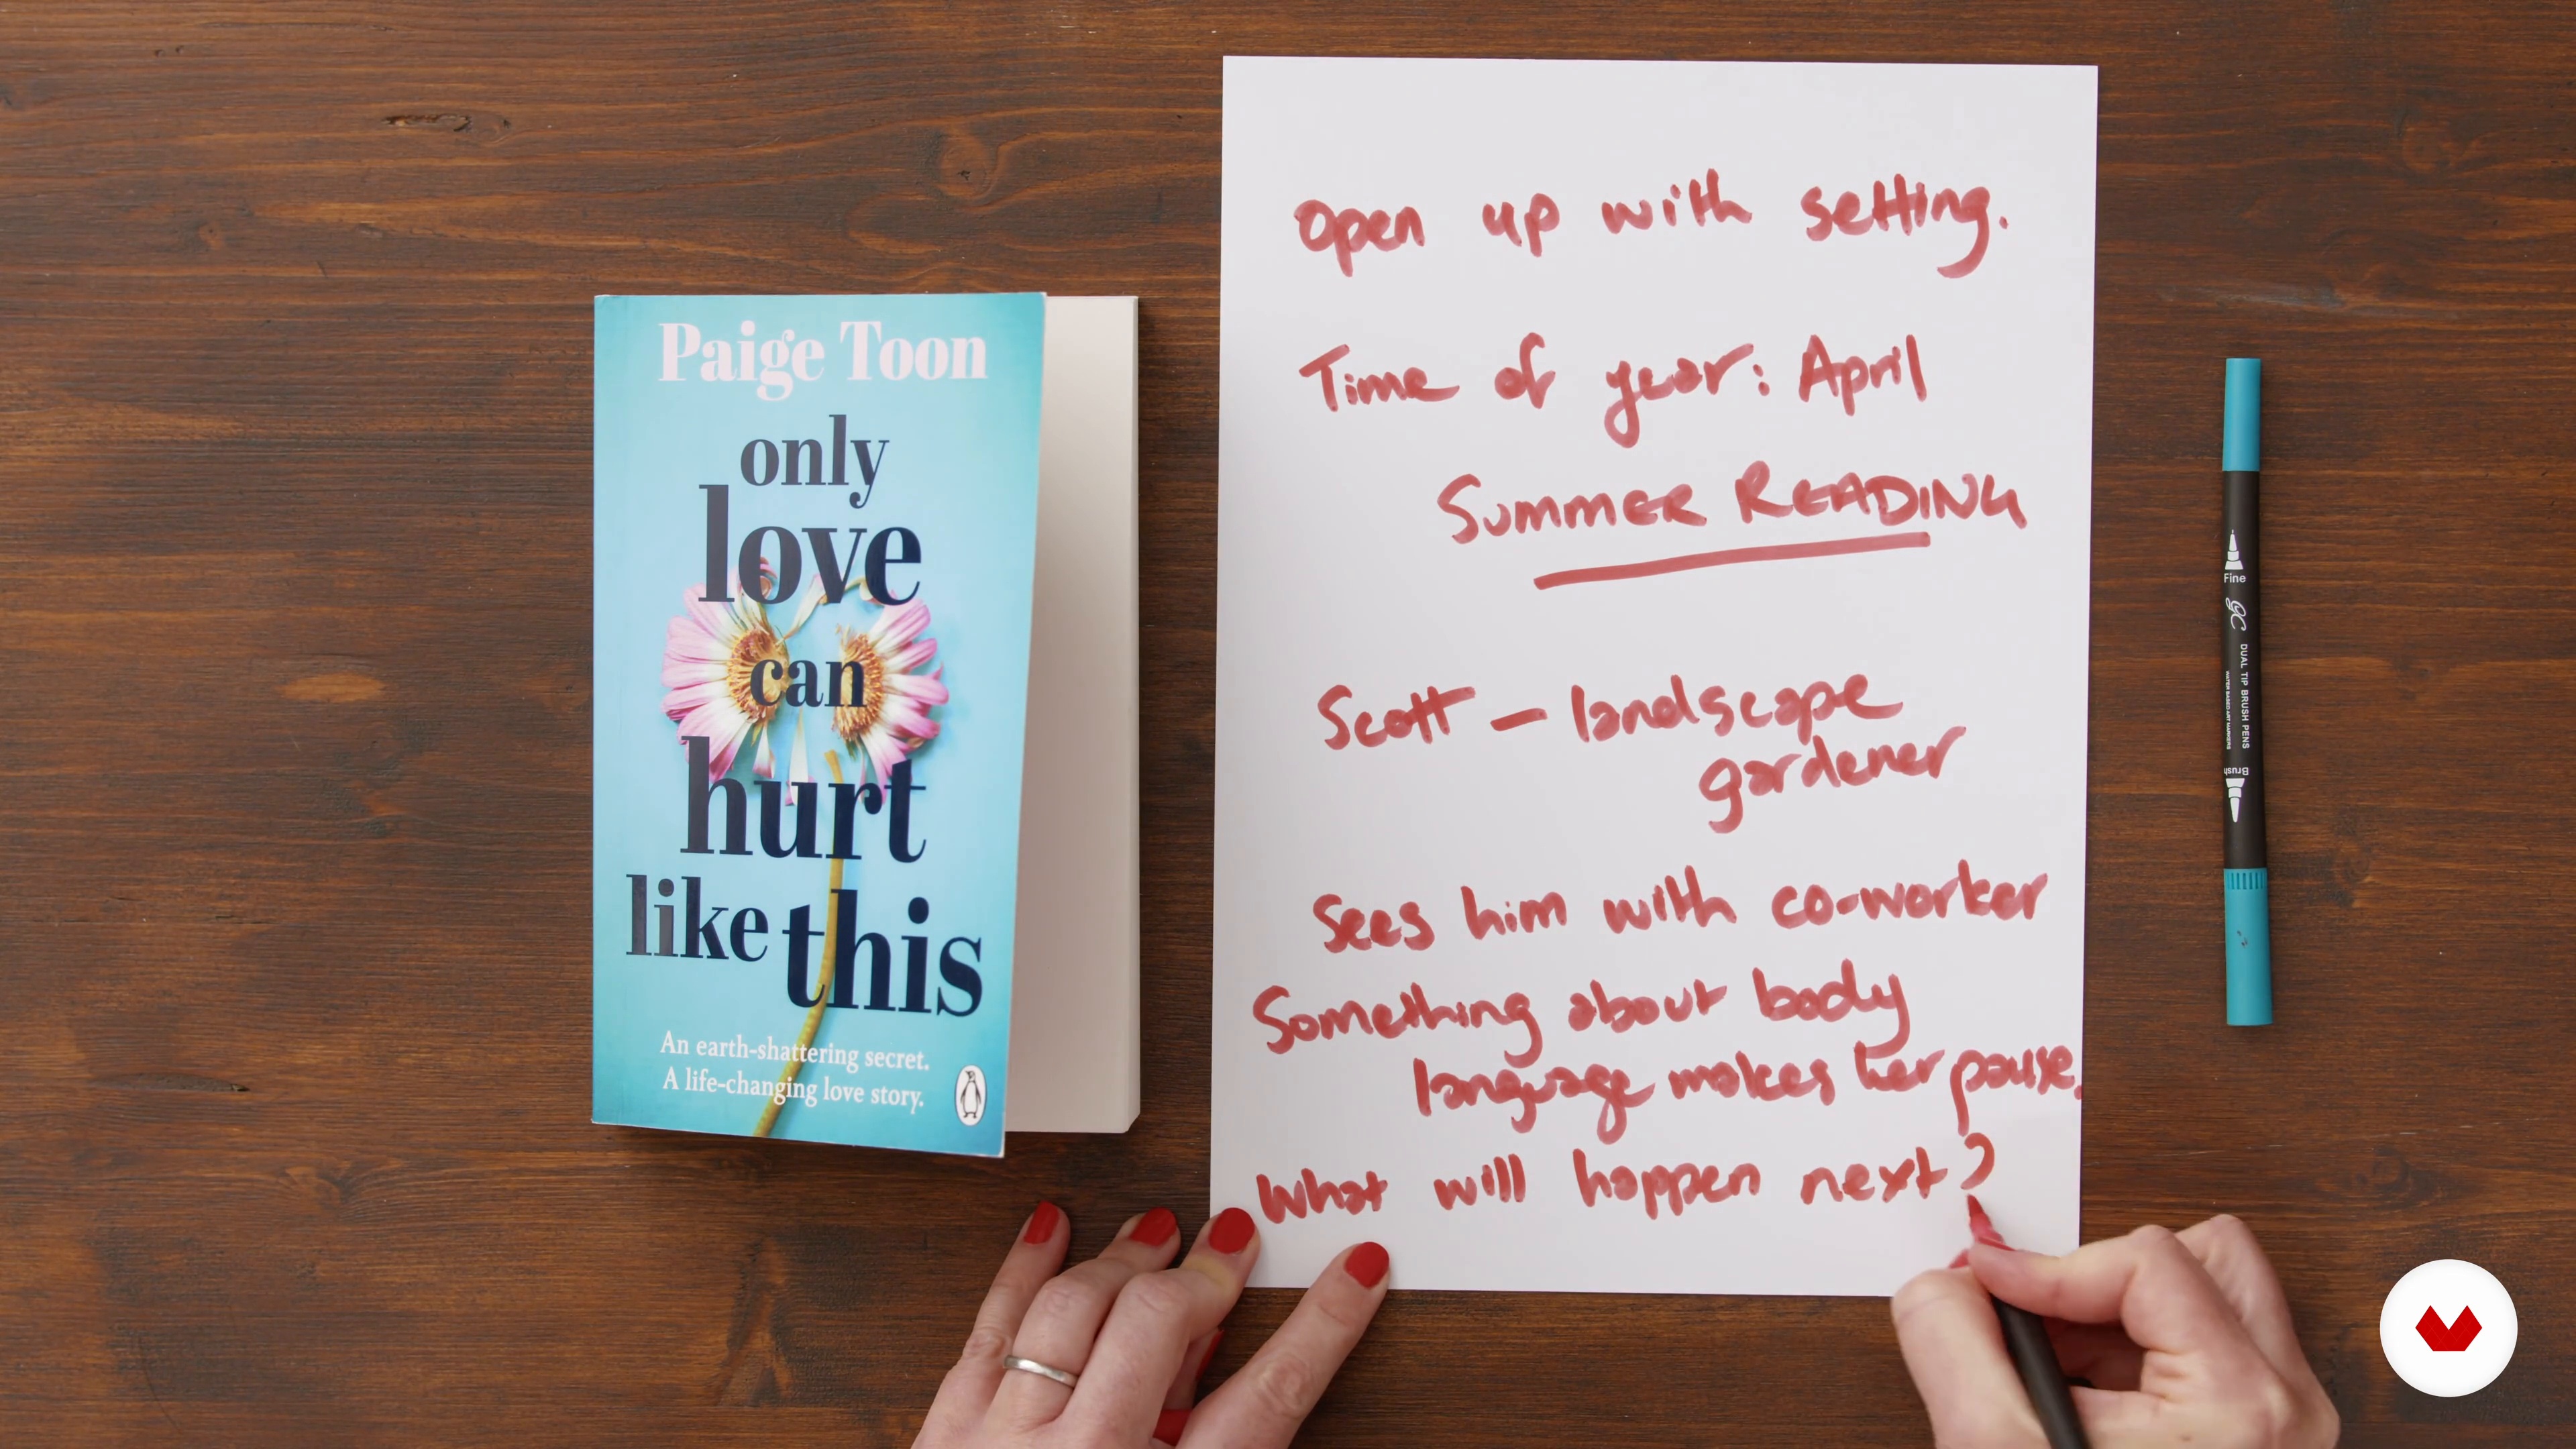 Paige Toon
only
love
can
hurt
like this
An earth-shattering secret.
A life-changing love story.
Open up with setting.
Time of year: April
SUMMER READING
Scott – landscape
gardener
Sees him with co-worker
Something about body
language makes her pause.
What will happen next?
Fine
DUAL TIP BRUSH PENS
WATER BASED ART MARKERS
Brush